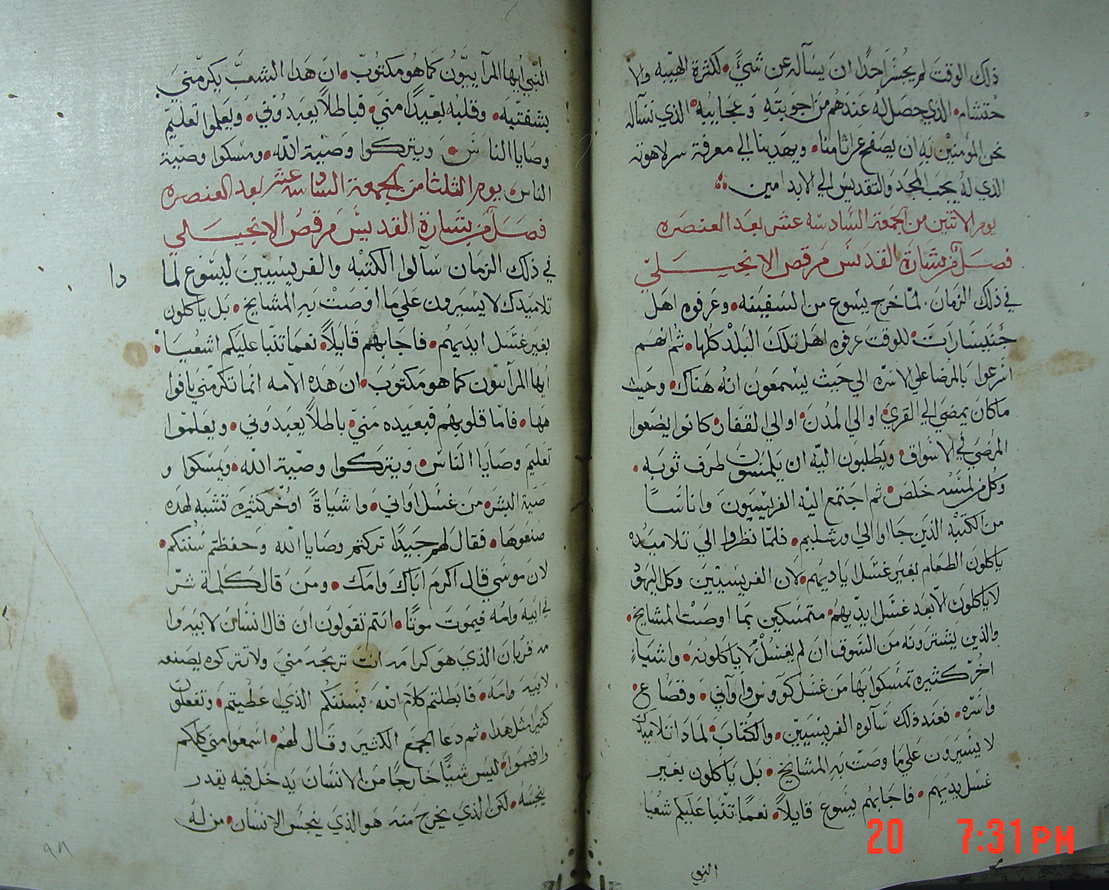 ذلك الوقت لم يجسر احدًا ان يسآله عن شئ • لكثرة الهيبه ولا
حتشام • الذي حصل له عندهم من اجوبته وعجايبه • الذي نسآله
نحن المؤمنين به ان يصفح عن اثامنا • ويهدينا الى معرفة سر لاهوته
الذي له يجب المجد والتقديس الى الابد امين
يوم الاثنين من الجمعة السادسه عشر بعد العنصره
فصل من بشارة القديس مرقص الانجيلي
في ذلك الزمان لما خرج يسوع من السفينه • وعرفوه اهل
جنيسارات • للوقت عرفوه اهل تلك البلد كلها • ثم انهم
اسرعوا بالمرضا على الاسره الى حيث يسمعون انه هناك • وحيث
ما كان يمضي الى القرى او الى المدن • او الى القفار كانوا يضعوا
المرضى في الاسواق • ويطلبون اليه ان يلمسون طرف ثوبه •
وكل من لمسه خلص • ثم اجتمع اليه الفريسيون واناسا
من الكتبه الذين جاوا الى اورشليم • فلما نظروا الى تلاميذه
ياكلون الطعام بغير غسل ياديهم • لان الفريسيين وكل اليهود
لا ياكلون الا بعد غسل يديهم • متمسكين بما اوصت المشايخ •
والذين يشترونه من السوق ان لم يغسل لا ياكلونه • واشياء
اخر كثيره تمسكوا بها من غسل كووس واواني • وقصاع
واسره • فعند ذلك سآلوه الفريسيين • والكتاب • لماذا تلاميذك
لا يسيرون على ما وصت به المشايخ • بل ياكلون بغير
غسل يديهم • فاجابهم يسوع قايلاً • نعمًا تنبا عليكم شعيا
النبي
النبي ايها المرآييون كما هو مكتوب • ان هذا الشعب يكرمني
بشفتيه • وقلبه بعيدًا مني • فباطلاً يعبدوني • ويعلموا تعليم
وصايا الناس • ويتركوا وصية الله • ومسكوا وصية
الناس • يوم الثلثا من الجمعة السادسه عشر بعد العنصره
فصل من بشارة القديس مرقص الانجيلي
في ذلك الزمان سآلوا الكتبه والفريسيين ليسوع لما
ذا
تلاميذك لا يسيرون على ما اوصت به المشايخ • بل ياكلون
بغير غسل ايديهم • فاجابهم قايلاً • نعمًا تنبا عليكم اشعيا •
ايها المرآييون كما هو مكتوب • ان هذه الامه انما تكرمني بافوا
هها • فاما قلوبهم فبعيده مني • باطلاً يعبدوني • ويعلموا
تعليم وصايا الناس • ويتركوا وصية الله • ويمسكوا و
صية البشر • من غسل اواني • واشياءً اخر كثيره تشبه لهذه
صنعوها • فقال لهم جيدًا تركتم وصايا الله وحفظتم سنتكم •
لان موسى قال اكرم اباك وامك • ومن قال كلمة شر
في ابيه وامه فيموت موتًا • انتم تقولون ان قال انسان لابيه وا
مه قربان الذي هو كرامه انت تربحه مني ولا تتركوه يصنعه
لابيه وامه • فابطلتم كلام الله بسنتكم الذي اعطيتم • وتفعلون
كثيرًا مثل هذا • ثم دعا الجمع الكثير وقال لهم • اسمعوا مني كلكم
وافهموا • ليس شيًا خارجًا من الانسان يدخل فيه يقدر
ينجسه • لكن الذي يخرج منه هو الذي ينجس الانسان • من له
٩٨
20 7:31PM